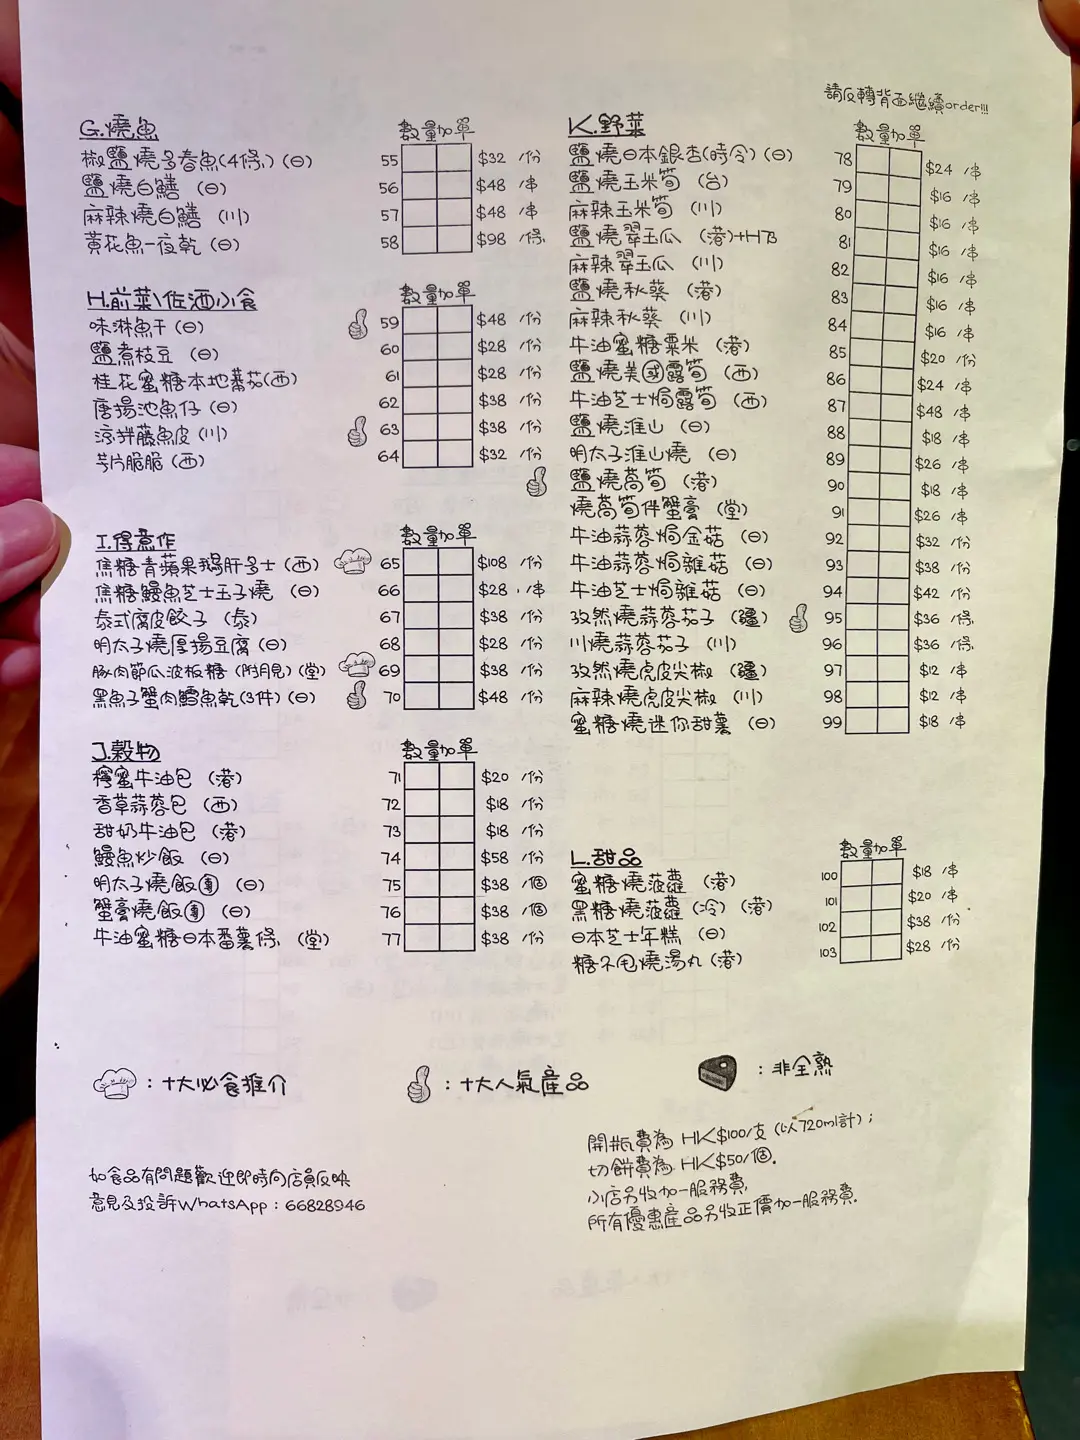 請反轉背面繼續order!!!
G.燒魚 數量 加單
椒鹽燒多春魚(4條)(日) 55 $32 /份
鹽燒白鱔 (日) 56 $48 /串
麻辣燒白鱔 (川) 57 $48 /串
黃花魚一夜乾 (日) 58 $98 /條
H.前菜\佐酒小食 數量 加單
味淋魚干 (日) 59 $48 /份
鹽煮枝豆 (日) 60 $28 /份
桂花蜜糖本地蕃茄(西) 61 $28 /份
唐揚池魚仔 (日) 62 $38 /份
涼拌藤魚皮 (川) 63 $38 /份
芋片脆脆 (西) 64 $32 /份
I.得意作 數量 加單
焦糖青蘋果鵝肝多士 (西) 65 $108 /份
焦糖鰻魚芝士玉子燒 (日) 66 $28 /串
泰式腐皮餃子 (泰) 67 $38 /份
明太子燒厚揚豆腐 (日) 68 $28 /份
豚肉節瓜波板糖 (附月見) (堂) 69 $38 /份
黑魚子蟹肉鱈魚乾(3件) (日) 70 $48 /份
J.穀物 數量 加單
檸蜜牛油包 (港) 71 $20 /份
香草蒜蓉包 (西) 72 $18 /份
甜奶牛油包 (港) 73 $18 /份
鰻魚炒飯 (日) 74 $58 /份
明太子燒飯團 (日) 75 $38 /個
蟹膏燒飯團 (日) 76 $38 /個
牛油蜜糖日本番薯條 (堂) 77 $38 /份
K.野菜 數量 加單
鹽燒日本銀杏(時令) (日) 78 $24 /串
鹽燒玉米筍 (台) 79 $16 /串
麻辣玉米筍 (川) 80 $16 /串
鹽燒翠玉瓜 (港)+H乃 81 $16 /串
麻辣翠玉瓜 (川) 82 $16 /串
鹽燒秋葵 (港) 83 $16 /串
麻辣秋葵 (川) 84 $16 /串
牛油蜜糖粟米 (港) 85 $20 /份
鹽燒美國露筍 (西) 86 $24 /串
牛油芝士焗露筍 (西) 87 $48 /串
鹽燒淮山 (日) 88 $18 /串
明太子淮山燒 (日) 89 $26 /串
鹽燒萵筍 (港) 90 $18 /串
燒萵筍伴蟹膏 (堂) 91 $26 /串
牛油蒜蓉焗金菇 (日) 92 $32 /份
牛油蒜蓉焗雜菇 (日) 93 $38 /份
牛油芝士焗雜菇 (日) 94 $42 /份
孜然燒蒜蓉茄子 (疆) 95 $36 /條
川燒蒜蓉茄子 (川) 96 $36 /條
孜然燒虎皮尖椒 (疆) 97 $12 /串
麻辣燒虎皮尖椒 (川) 98 $12 /串
蜜糖燒迷你甜薯 (日) 99 $18 /串
L.甜品 數量 加單
蜜糖燒菠蘿 (港) 100 $18 /串
黑糖燒菠蘿 (冷) (港) 101 $20 /串
日本芝士年糕 (日) 102 $38 /份
糖不甩燒湯丸 (港) 103 $28 /份
：十大必食推介
：十大人氣產品
：非全熟
如食品有問題歡迎即時向店員反映
意見及投訴WhatsApp：66828946
開瓶費為 HK$100/支 (以720ml計)；
切餅費為 HK$50/個.
小店另收加一服務費.
所有優惠產品另收正價加一服務費.